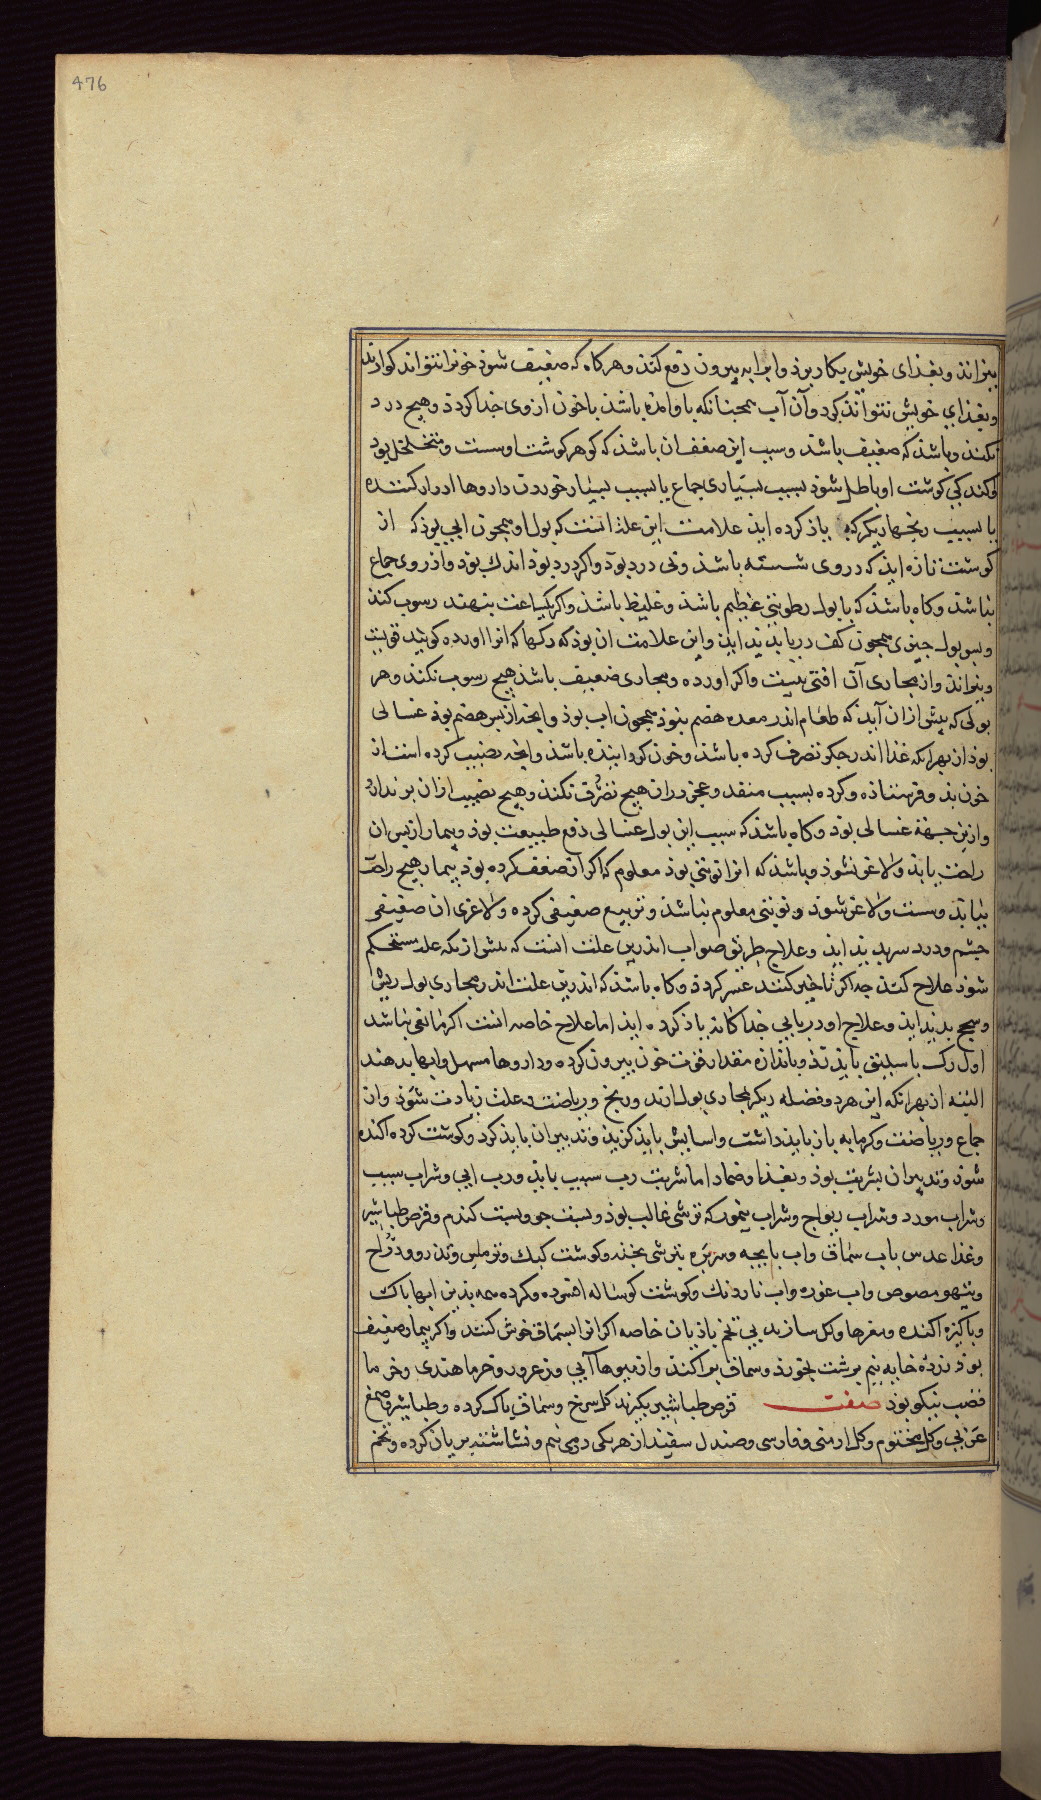 476
بتواند وبغذای خویش بکار برد وابرا به بیرون دفع کند وهرکاه که ضعیف شود خونرا نتواند کوارند
وبغذای خویش نتواند کرد وآن آب همچنانکه با وامده باشد با خون ازوی جدا کردد وهیچ درد
نکند وباشد که ضعیف باشد وسبب این ضعف ان باشد که کوهر کوشت او سست ومتخلخل بود
وکندکی کوشت او باطل شود بسبب بسیاری جماع یا بسبب بسیار خوردن داروها ادرار کننده
یا بسبب رنجها دیکر که یاذ کرده اید علامت این علت انست که بول او همچون ابی بود که از
کوشت تازه اید که در وی شسته باشد وبی درد بود واکر درد بود اندک بود وارزوی جماع
نباشد وکاه باشد که با بول رطوبتی عظیم باشد وغلیظ باشد واکر یکساعت بنهند رسوب کند
وبسر بول چیزی همچون کف دریا پدید اید واین علامت ان بود که رکها که انرا اورده کویند قویست
وبتواند واز مجاری آن افتی نیست واکر اورده ومجاری ضعیف باشد هیچ رسوب نکند وهر
بولی که پیش ازان آید که طعام اندر معده هضم بنود همچون اب بود وانچه از پس هضم بود غسالی
بود از بهر انکه غذا اندر جکر تصرف کرده باشد وخون کردانیده باشد وانچه نصیب کرده است از
خون بذو فرستاده وکرده بسبب منفذ وعجز دران هیچ تصرف نکند وهیچ نصیب ازان بر ندارد
وازین جهة غسالی بود وکاه باشد که سبب این بول غسالی دفع طبیعت بود وبیمار ازپس ان
راحت یابد ولاغر نشود وباشد که انرا نوبتی بود معلوم که اکر از ضعف کرده بود بیمار هیچ راحت
نیابد وسست ولاغر شود ونوبتی معلوم نباشد وتربیع ضعیفی کرده ولاغری ان ضعیفی
چشم ودرد سر پدید اید وعلاج طریق صواب اندرین علت انست که پیش ازانکه علت مستحکم
شود علاج کند چه اکر تاخیر کنند عسر کردد وکاه باشد که اندرین علت اندر مجاری بول ریش
وسحج پدید اید وعلاج او در بابی جداکانه یاذ کرده اید اما علاج خاصه انست اکر مانعی نباشد
اول رک باسلیق باید زد وباندازه مقدار قوت خون بیرون کرده وداروها مسهل وابها بدهند
البته از بهر انکه این هر دو فضله دیکر بمجاری بول ارند ورنج وریاضت وعلت زیادت شود وان
جماع وریاضت وکرمابه باز باید داشت واسایش باید کزید وتدبیران باید کرد وکوشت کرده اکنده
شود وتدبیران بشربت بود وبغذا وضماد اما شربت رب سیب باید ورب ابی وشراب سیب
وشراب مورد وشراب ریواج وشراب لیمو که ترشی غالب بود وسفت جو وسفت کندم وقرص طباشیر
وغذا عدس باب سماق واب بابجه ومزوره بترشی پخته وکوشت کبک وترملس وتذرو ودراج
وتیهو مصوص واب غوره واب ناردنک وکوشت کوساله افسرده وکرده همه بذین ابها پاک
وپاکیزه اکنده ومغزها وکل سازند بی تخم بادیان خاصه اکر انرا بسماق خوش کنند واکر بیمار ضعیف
بود زرده خایه نیم برشت بخورد وسماق بپراکند واز میوها آبی وزعرور وخرما هندی وخرما
قضب نیکو بود صفت قرص طباشیر بکیرند کل سرخ وسماق پاک کرده وطباشیر وصمغ
عربی وکل مختوم وکل ارمنی وفارسی وصندل سفید از هر یکی درمی نیم ونشاشته بریان کرده وتخم